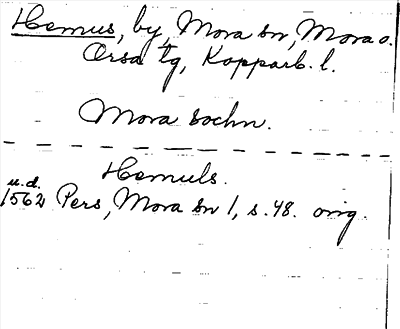 Hemus, by, Mora sn, Mora o.
Orsa tg, Kopparb. l.
Mora sochn.
Hemuls.
u.d.
1562 Pers, Mora sn 1, s. 48. orig.